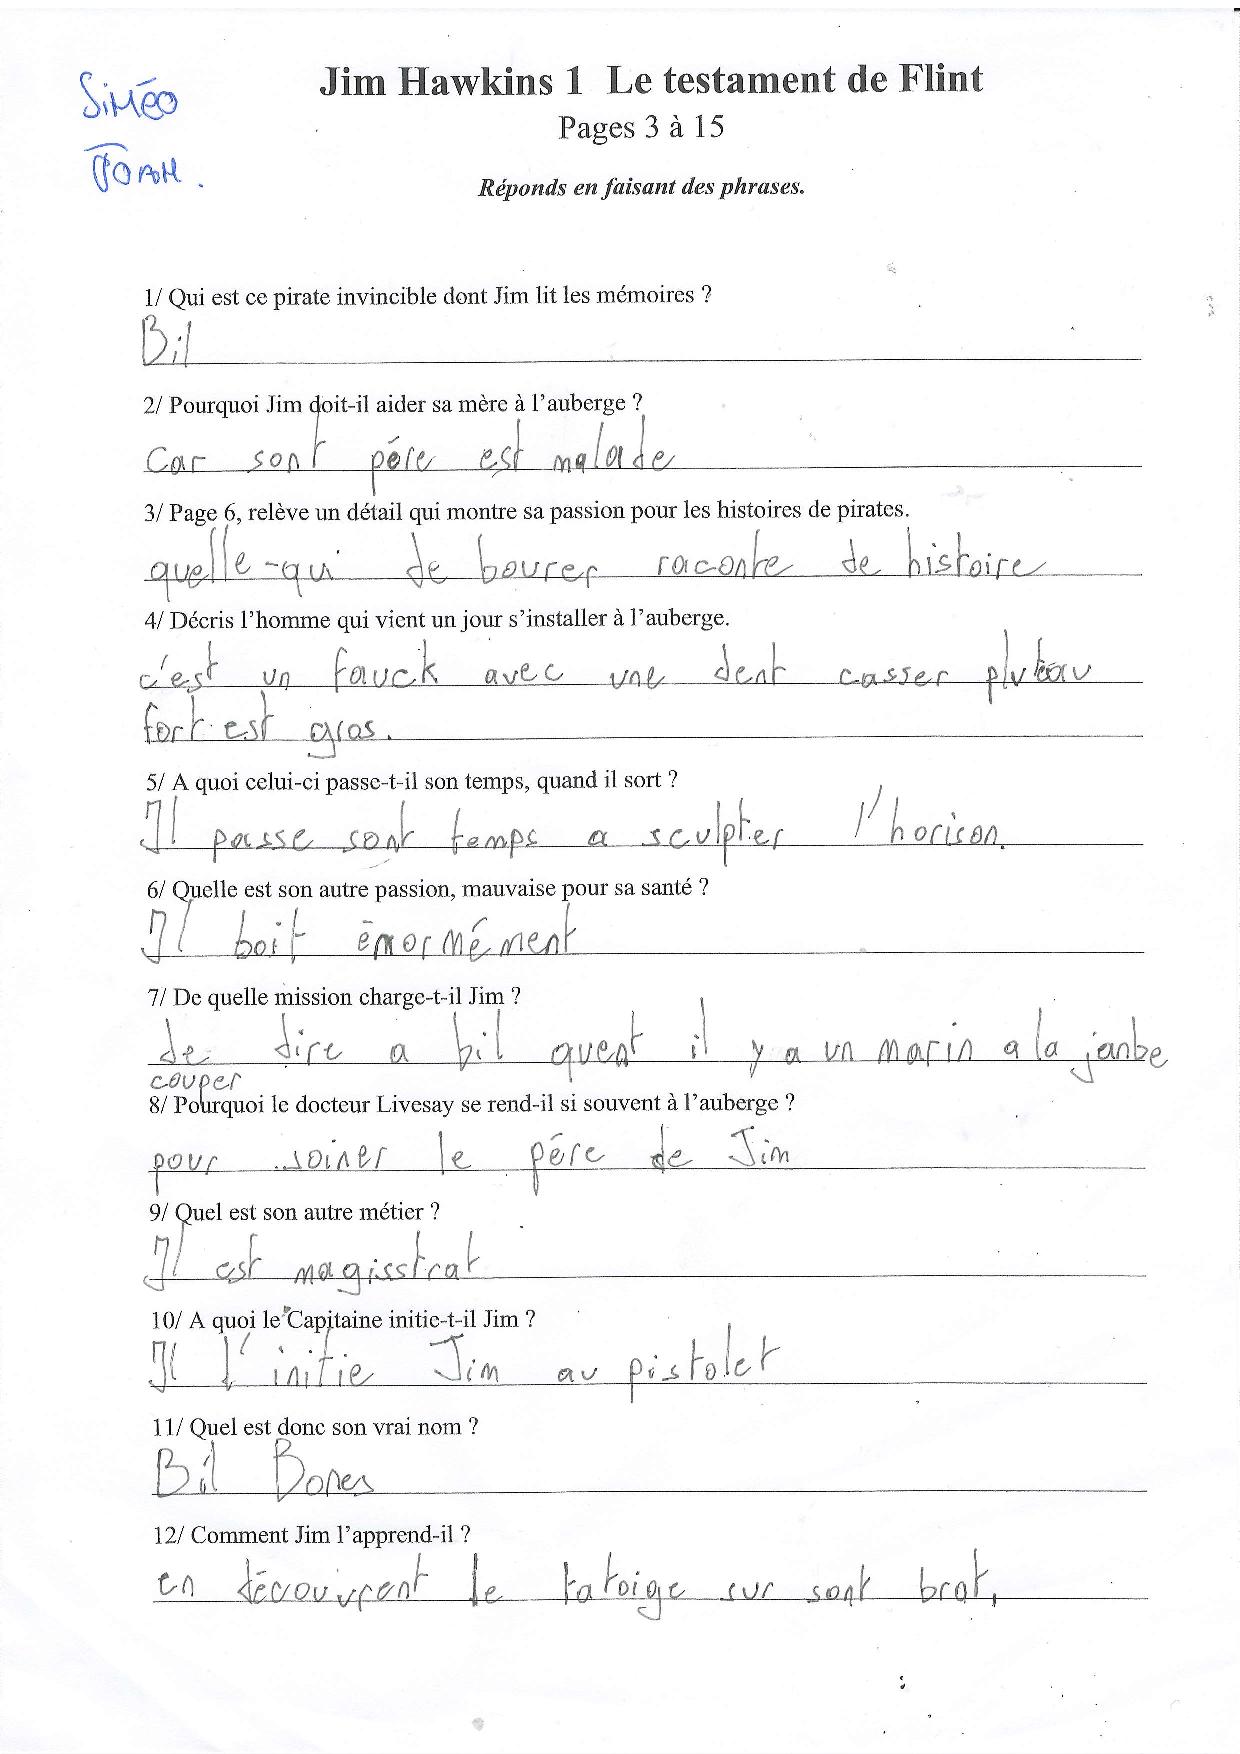 Jim Hawkins 1 Le testament de Flint
Siméo
Pages 3 à 15
Réponds en faisant des phrases.
1/ Qui est ce pirate invincible dont Jim lit les mémoires ?
Bil
2/ Pourquoi Jim doit-il aider sa mère à l'auberge ?
car sont pére est malade
3/ Page 6, relève un détail qui montre sa passion pour les histoires de pirates.
quelle-qui de bourer raconte de histoire
4/ Décris l'homme qui vient un jour s'installer à l'auberge.
c'est un fauck avec une dent casser pluteau
fort est gros.
5/ A quoi celui-ci passe-t-il son temps, quand il sort ?
Il passe sont temps a sculpter l'horison.
6/ Quelle est son autre passion, mauvaise pour sa santé ?
Il boit énormément
7/ De quelle mission charge-t-il Jim ?
de dire a bil quent il y a un marin a la janbe
couper
8/ Pourquoi le docteur Livesay se rend-il si souvent à l'auberge ?
pour soiner le pére de Jim
9/ Quel est son autre métier ?
Il est magisstrat
10/ A quoi le Capitaine initie-t-il Jim ?
Il l'initie Jim au pistolet
11/ Quel est donc son vrai nom ?
Bil Bones
12/ Comment Jim l'apprend-il ?
en découvrent le tatoige sur sont brat,